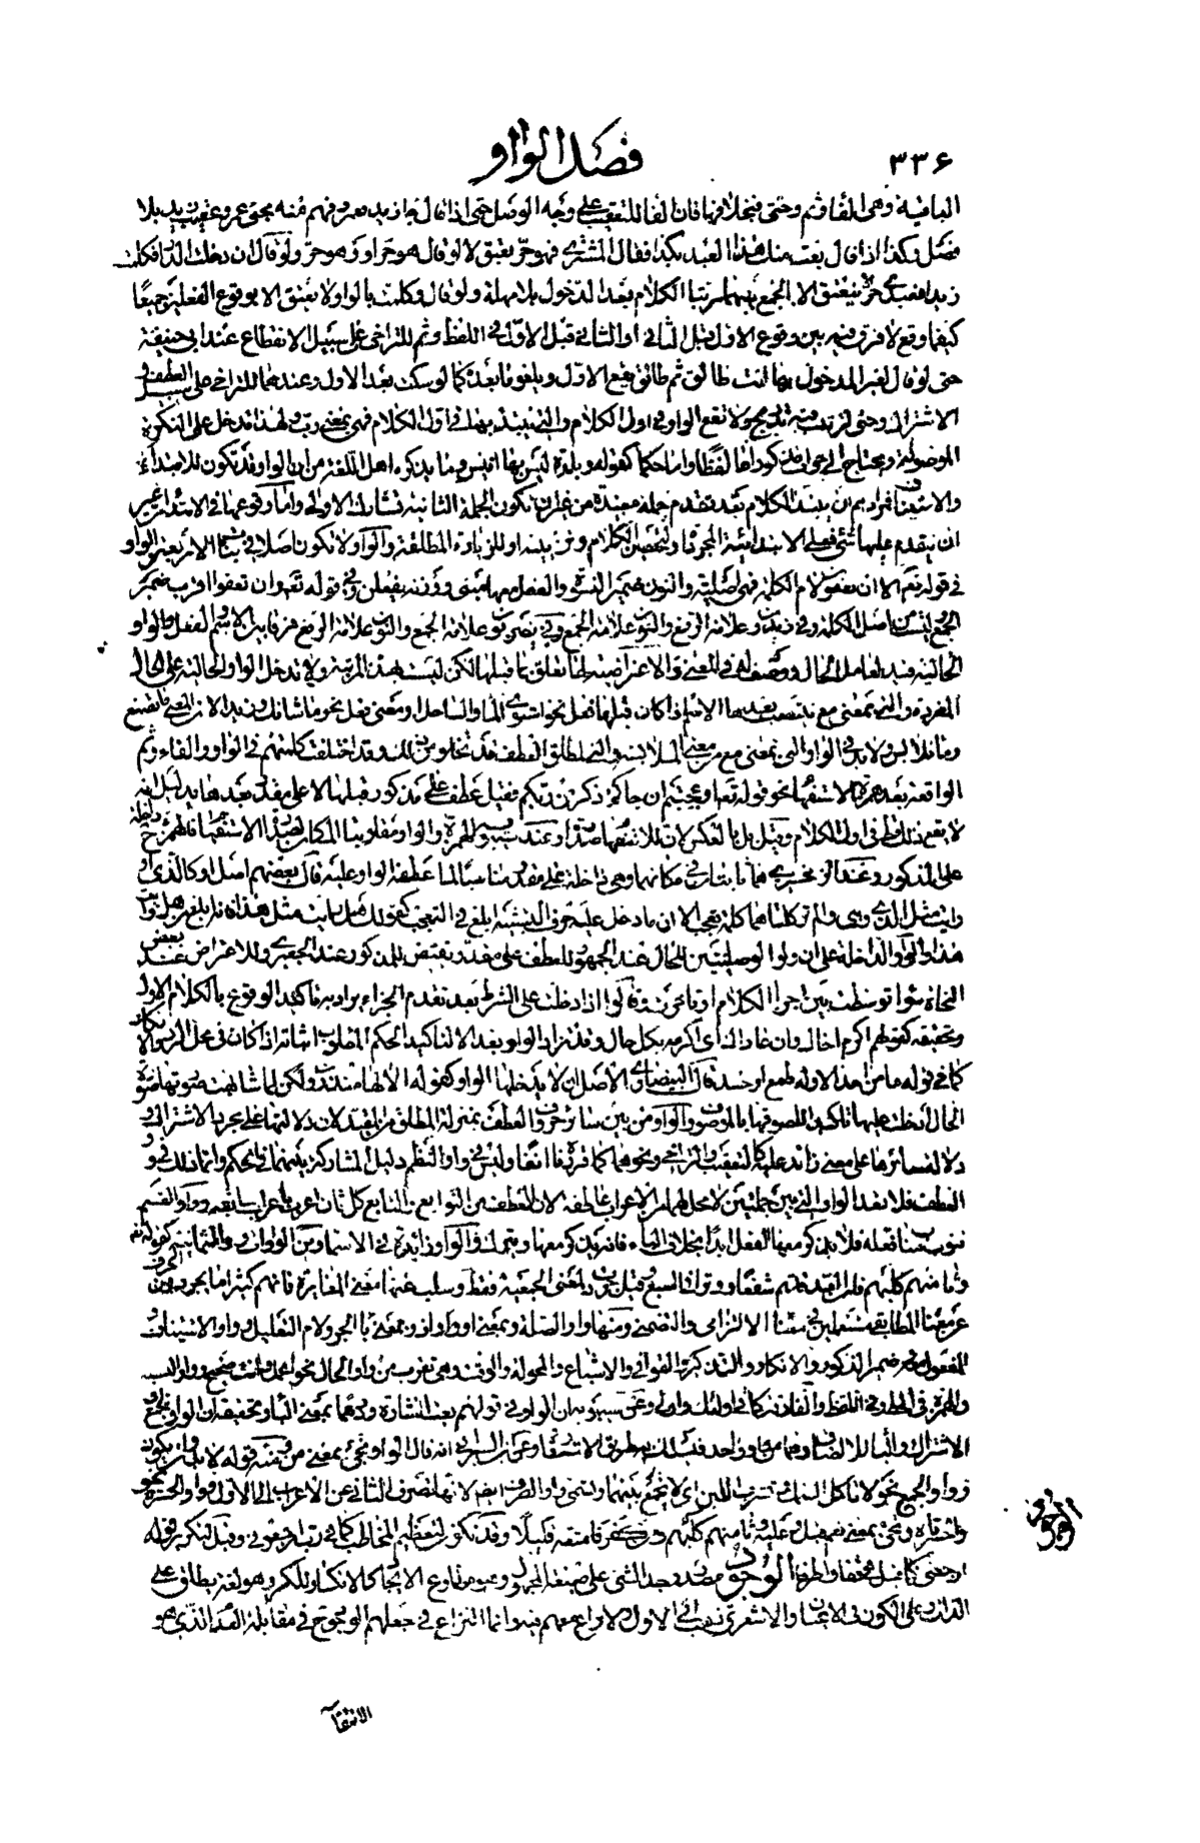 ٣٣۶
فصل الواو
الباقية وهى الفاء وثم وحتى فان الفاء للتعقيب على وجه الوصل حتى اذا قال جاء زيد فعمرو فهم منه مجئ عمرو عقيب زيد بلا
فصل وكذا اذا قال بعت منك هذا العبد بكذا فقال المشترى فهو حر يعتق لا لو قال هو حر او وهو حر ولو قال ان دخلت الدار فكلمت
زيدا فعبدى حر لا يعتق الا بالجمع بينهما مرتبا الكلام بعد الدخول بلا مهلة ولو قال وكلمت بالواو لا يعتق الا بوقوع الفعلين جميعا
كيفما وقع لا فرق فيه بين وقوع الاول قبل الثانى او الثانى قبل الاول فى اللفظ وثم للتراخى على سبيل الانقطاع عند ابى حنيفة
حتى لو قال لغير المدخول بها انت طالق ثم طالق يقع الاول ويلغو ما بعده كما لو سكت بعد الاول وعندهما للتراخى على سبيل العطف و
الاشتراك وحتى لترتيب فيه تدريج ولا تقع الواو فى اول الكلام والتى يبتدء بها فى اول الكلام فهى بمعنى رب ولهذا تدخل على النكرة
الموصوفة ويحتاج الى جواب مذكور اما لفظا واما حكما كقوله وبلدة ليس بها انيس وما يذكره اهل اللغة من ان الواو قد تكون للابتداء
والاستيناف فمرادهم ان يبتدأ الكلام بعد تقدم جملة مفيدة من غير ان تكون الجملة الثانية تشارك الاولى واما وقوعها فى الابتداء من غير
ان يتقدم عليها شئ فعلى الابتدائية المجردة او لتحسين الكلام وتزيينه او للزيادة المطلقة والواو لا تكون اصلا فى بنات الاربعة والواو
فى قوله تعالى الا ان يعفون لام الكلمة فهى اصلية والنون ضمير النسوة والفعل معها مبنى ووزنه يفعلن وفى قوله تعالى وان تعفوا اقرب ضمير
الجمع ليست من اصل الكلمة وفى زيدون علامة الرفع والنون علامة الجمع وفى يضربون علامة الجمع والنون علامة الرفع فرقا بين الاسم والفعل والواو
الحالية قيد لعامل الحال ووصف له فى المعنى والاعتراضية لها تعلق بما قبلها لكن ليست بهذه المرتبة ولا تدخل الواو الحالية على الحال
المفردة والتى بمعنى مع ينتصب بعدها الاسم اذا كان قبلها فعل نحو استوى الماء والساحل او معنى فعل نحو ما شانك وزيدا لان المعنى ما تصنع
وما تلابس ولا بد فى الواو التى بمعنى مع من معنى الملابسة والتى لمطلق العطف قد تخلو من ذلك وقد اختلفت كلمتهم فى الواو والفاء وثم
الواقعة بعد همزة الاستفهام نحو قوله تعالى او عجبتم ان جاءكم ذكر من ربكم فقيل عطف على مذكور قبلها لا على مقدر بعدها بدليل انه
لا يقع ذلك قط فى اول الكلام وقيل بل بالعكس لان للاستفهام صدارة وعند سيبويه الهمزة والواو مقلوبتا المكان لصدارة الاستفهام فالهمزة ح داخلة
على المذكور وعند الزمخشرى هما ثابتتان فى مكانهما وهى داخلة على مقدر مناسب لما عطفه الواو عليه قال بعضهم اصل او كالذى او
رايت مثل الذى وهى والم تر كلتاهما كلمة تعجب الا ان ما دخل عليه حرف التشبيه ابلغ فى التعجب كقولك هل رايت مثل هذا فانه ابلغ من هل رايت
هذا والواو الداخلة على ان ولو الوصليتين للحال عند الجمهور للعطف على مقدر نقيض للمذكور عند الجعبرى وللاعتراض عند بعض
النحاة سواء توسطت بين اجزاء الكلام او تاخرت قالوا اذا دخلت على الشرط بعد تقدم الجزاء يراد به تاكيد الوقوع بالكلام الاول
وتحقيقه كقولهم اكرم اخاك وان عاداك اى اكرمه بكل حال وقد تزاد الواو بعد الا لتاكيد الحكم المطلوب اثباته اذا كان فى محل الرد والانكار
كما فى قوله ما من احد الا وله طمع او حسد قال البيضاوى الاصل ان لا يدخلها الواو كقوله الا لها منذرون ولكن لما شابهت صورتها صورة
الحال دخلت عليها تاكيدا للصوقها بالموصوف والواو من بين سائر حروف العطف بمنزلة المطلق من المقيد لان دلالتها على مجرد الاشتراك و
دلالة سائرها على معنى زائد عليه كالتعقيب والتراخى ونحوهما كما قررنا آنفا وليس فى واو النظم دليل المشاركة بينهما فى الحكم وانما ذلك فى واو
العطف فلا تعد الواو التى بين جملتين لا محل لهما من الاعراب عاطفة لان العطف من التوابع والتابع كل ثان اعرب باعراب سابقه وواو القسم
تنوب مناب فعله فلا يذكر معها الفعل ابدا بخلاف الباء فانه يذكر معها ويترك والواو زائدة فى الاسماء ومن الواوات واو الثمانية كقوله تعالى
وثامنهم كلبهم
غير معناها المطابقى مستعملين فى معناها الالتزامى والتضمنى ومنها واو الصلة وبمعنى او وواو اذ وبمعنى باء الجر ولام التعليل وواو الاستيناف
والمفعول معه وضمير الذكور والانكار والتذكر والقوافى والاشباع والمحولة والوقت وهى تقرب من واو الحال نحو اعمل وانت صحيح وواو النسبة
والهمزة فى الخط وفى اللفظ والفارقة كما فى اولئك واولى وعن سيبويه ان الواو فى قولهم بعت الشاة شاة ودرهما بمعنى الباء وتحقيقه ان الواو للجمع و
الاشتراك والباء للالصاق وهما من واد واحد فسلك به طريق الاستعارة وعن السيرافى انه قال الواو تجئ بمعنى من ومنه قوله لا بد وان يكون
وواو الجمع نحو لا تاكل السمك وتشرب اللبن اى لا تجمع بينهما وتسمى واو الصرف ايضا لانها تصرف الثانى عن الاعراب الى الاول وواو الحسرة نحو
وا حسرتاه وتجئ بمعنى نعم قيل وعليه وثامنهم كلبهم ومن كفر فامتعه قليلا وقد تكون لتعظيم المخاطب كما فى رب ارجعونى وقيل لتكرير قوله
ارجعنى كما قيل فى قفا واطرقا الوجود مصدر وجد الشئ على صيغة المجهول وهو مطاوع الايجاد كالانكسار للكسر وهو لغة يطلق على
الذات وعلى الكون فى الاعيان والاشعرى ذهب الى الاول ولا نزاع معهم فيه وانما النزاع فى جعلهم الوجود فى مقابلة العدم الذى هو
الوجود
الانتفاء